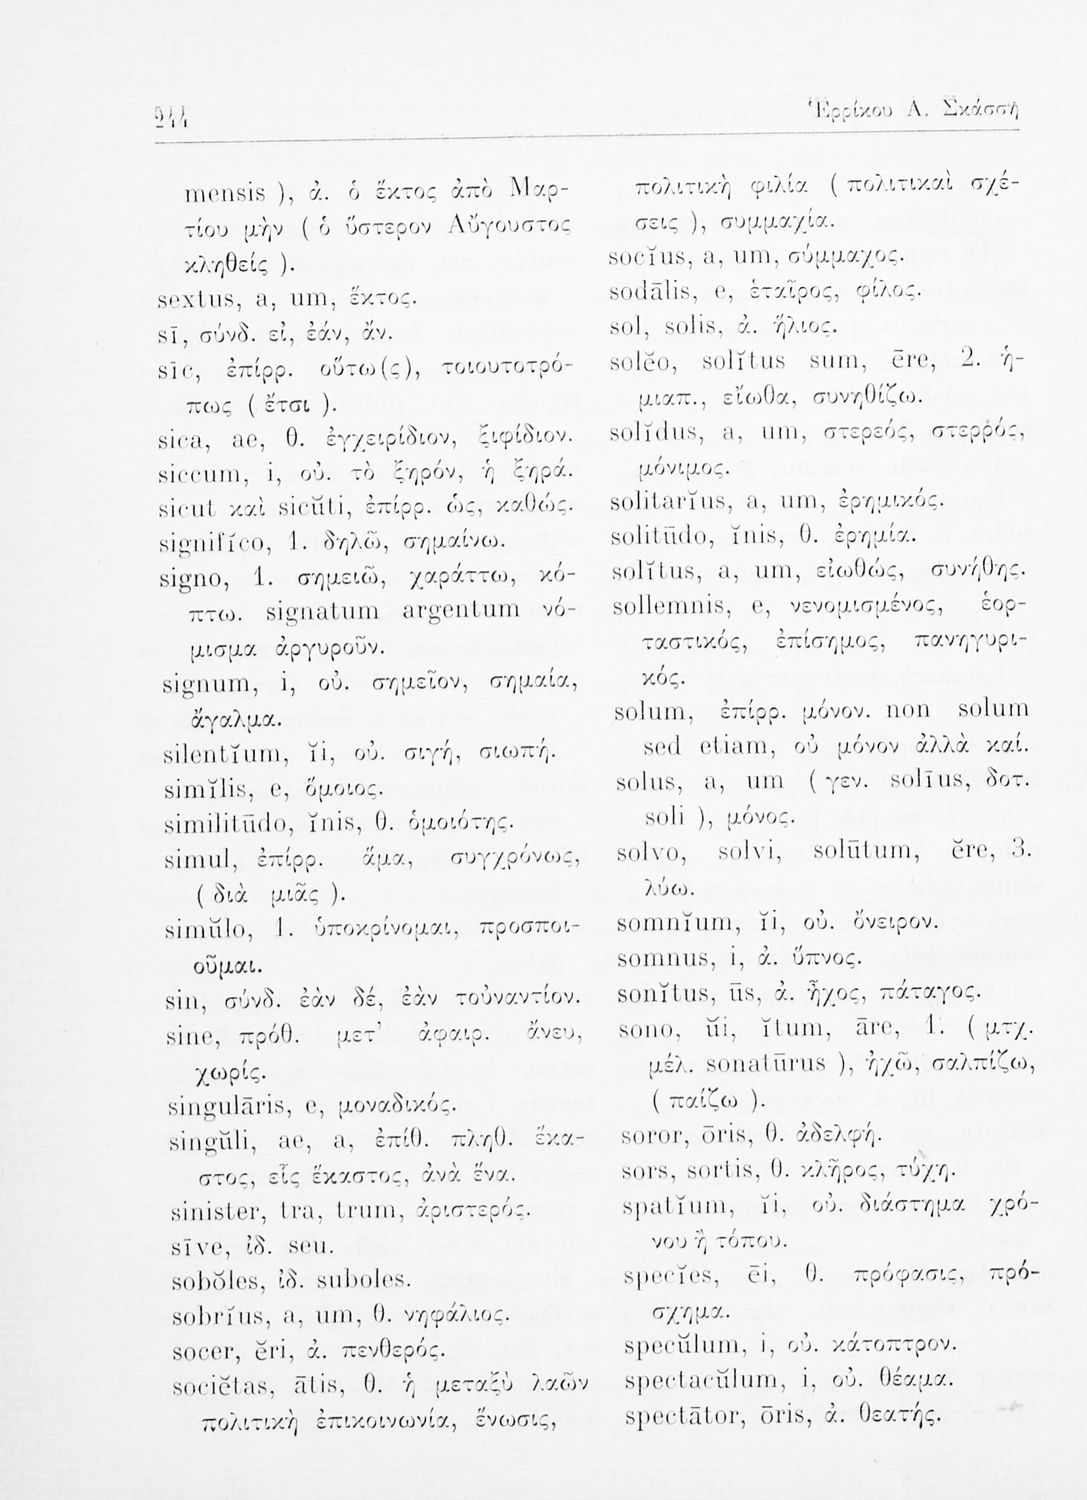 244
Ἑρρίκου Α. Σκάσση
mensis ), ἀ. ὁ ἕκτος ἀπὸ Μαρ-
τίου μὴν ( ὁ ὕστερον Αὔγουστος
κληθείς ).
sextus, a, um, ἕκτος.
sī, σύνδ. εἰ, ἐάν, ἄν.
sīc, ἐπίρρ. οὕτω(ς), τοιουτοτρό-
πως ( ἔτσι ).
sica, ae, θ. ἐγχειρίδιον, ξιφίδιον.
siccum, i, οὐ. τὸ ξηρόν, ἡ ξηρά.
sicut καὶ sicŭti, ἐπίρρ. ὡς, καθώς.
signifĭco, 1. δηλῶ, σημαίνω.
signo, 1. σημειῶ, χαράττω, κό-
πτω. signatum argentum νό-
μισμα ἀργυροῦν.
signum, i, οὐ. σημεῖον, σημαία,
ἄγαλμα.
silentĭum, ĭi, οὐ. σιγή, σιωπή.
simĭlis, e, ὅμοιος.
similitūdo, ĭnis, θ. ὁμοιότης.
simul, ἐπίρρ. ἅμα, συγχρόνως,
( διὰ μιᾶς ).
simŭlo, 1. ὑποκρίνομαι, προσποι-
οῦμαι.
sin, σύνδ. ἐὰν δέ, ἐὰν τοὐναντίον.
sine, πρόθ. μετ' ἀφαιρ. ἄνευ,
χωρίς.
singulāris, e, μοναδικός.
singŭli, ae, a, ἐπίθ. πληθ. ἕκα-
στος, εἷς ἕκαστος, ἀνὰ ἕνα.
sinister, tra, trum, ἀριστερός.
sīve, ἰδ. seu.
sobŏles, ἰδ. suboles.
sobrĭus, a, um, θ. νηφάλιος.
socer, ĕri, ἀ. πενθερός.
sociĕtas, ātis, θ. ἡ μεταξὺ λαῶν
πολιτικὴ ἐπικοινωνία, ἕνωσις,
πολιτικὴ φιλία ( πολιτικαὶ σχέ-
σεις ), συμμαχία.
socĭus, a, um, σύμμαχος.
sodālis, e, ἑταῖρος, φίλος.
sol, solis, ἀ. ἥλιος.
solĕo, solĭtus sum, ēre, 2. ἡ-
μιαπ., εἴωθα, συνηθίζω.
solĭdus, a, um, στερεός, στερρός,
μόνιμος.
solitarĭus, a, um, ἐρημικός.
solitūdo, ĭnis, θ. ἐρημία.
solĭtus, a, um, εἰωθώς, συνήθης.
sollemnis, e, νενομισμένος, ἑορ-
ταστικός, ἐπίσημος, πανηγυρι-
κός.
solum, ἐπίρρ. μόνον. non solum
sed etiam, οὐ μόνον ἀλλὰ καί.
solus, a, um ( γεν. solīus, δοτ.
soli ), μόνος.
solvo, solvi, solūtum, ĕre, 3.
λύω.
somnĭum, ĭi, οὐ. ὄνειρον.
somnus, i, ἀ. ὕπνος.
sonĭtus, ūs, ἀ. ἦχος, πάταγος.
sono, ŭi, ĭtum, āre, 1. ( μτχ.
μέλ. sonatūrus ), ἠχῶ, σαλπίζω,
( παίζω ).
soror, ōris, θ. ἀδελφή.
sors, sortis, θ. κλῆρος, τύχη.
spatĭum, ĭi, οὐ. διάστημα χρό-
νου ἢ τόπου.
specĭes, ēi, θ. πρόφασις, πρό-
σχημα.
specŭlum, i, οὐ. κάτοπτρον.
spectacŭlum, i, οὐ. θέαμα.
spectātor, ōris, ἀ. θεατής.